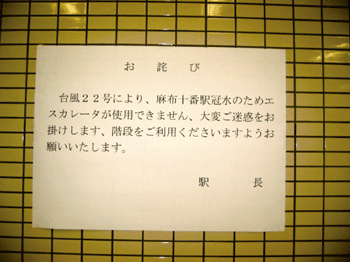 お詫び
台風22号により、麻布十番駅冠水のためエ
スカレータが使用できません、大変ご迷惑をお
掛けします、階段をご利用くださいますようお
願いいたします。
駅長